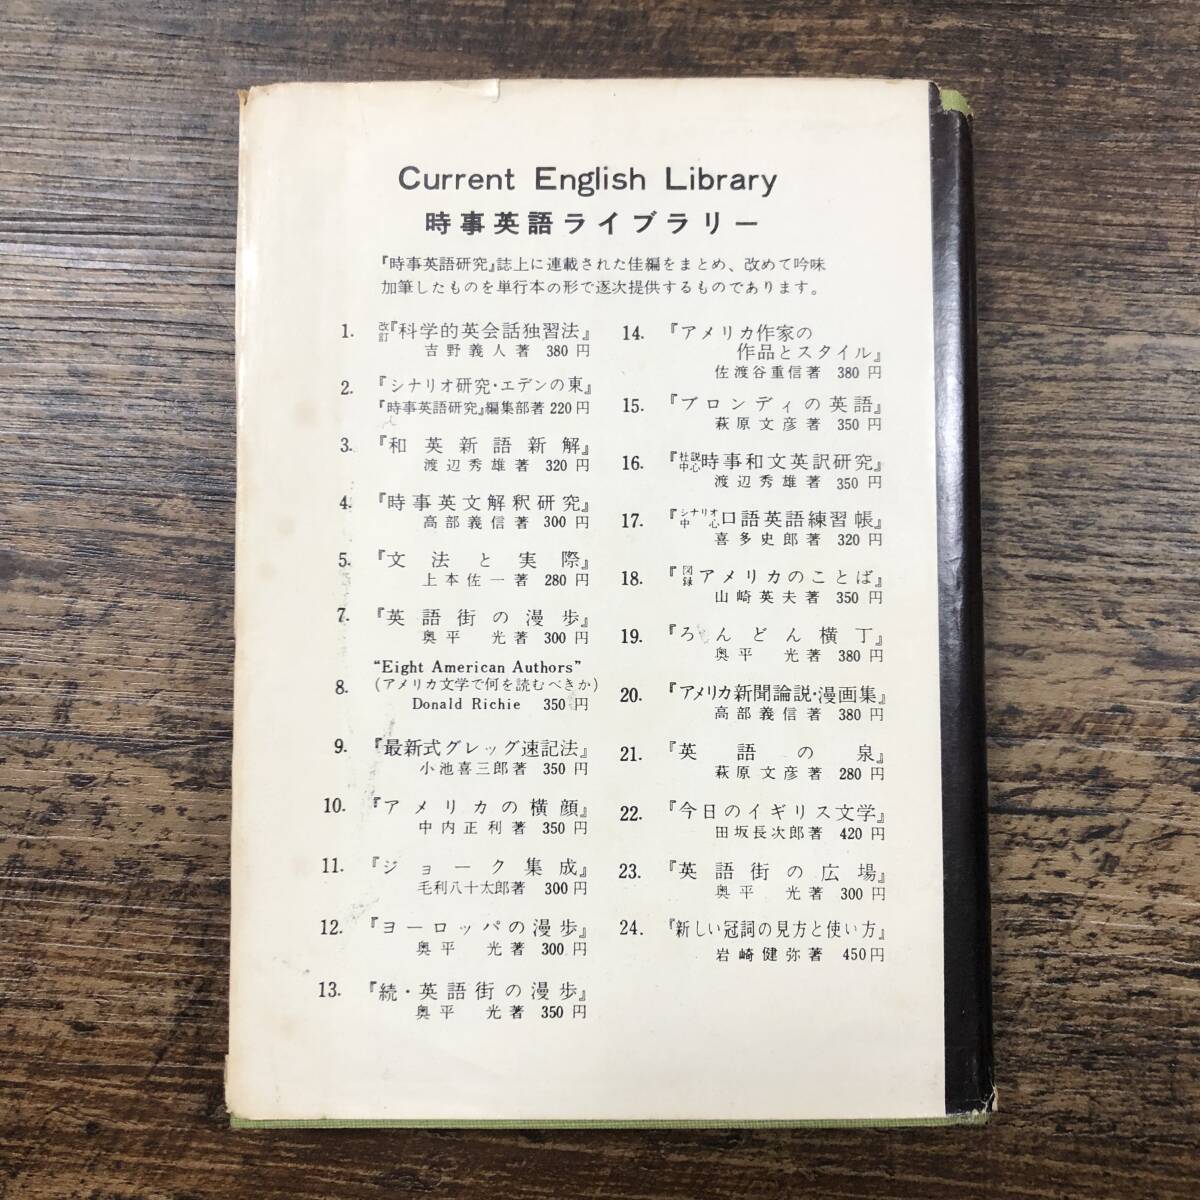 Current English Library
時事英語ライブラリー
『時事英語研究』誌上に連載された佳編をまとめ、改めて吟味
加筆したものを単行本の形で逐次提供するものであります。
1. 改訂『科学的英会話独習法』
吉野義人著 380円
2. 『シナリオ研究・エデンの東』
『時事英語研究』編集部著 220円
3. 『和英新語新解』
渡辺秀雄著 320円
4. 『時事英文解釈研究』
高部義信著 300円
5. 『文法と実際』
上本佐一著 280円
7. 『英語街の漫歩』
奥平光著 300円
8. "Eight American Authors"
(アメリカ文学で何を読むべきか)
Donald Richie 350円
9. 『最新式グレッグ速記法』
小池喜三郎著 350円
10. 『アメリカの横顔』
中内正利著 350円
11. 『ジョーク集成』
毛利八十太郎著 300円
12. 『ヨーロッパの漫歩』
奥平光著 300円
13. 『続・英語街の漫歩』
奥平光著 350円
14. 『アメリカ作家の
作品とスタイル』
佐渡谷重信著 380円
15. 『ブロンディの英語』
萩原文彦著 350円
16. 『社説中心時事和文英訳研究』
渡辺秀雄著 350円
17. 『シナリオ中心口語英語練習帳』
喜多史郎著 320円
18. 『図録アメリカのことば』
山崎英夫著 350円
19. 『ろんどん横丁』
奥平光著 380円
20. 『アメリカ新聞論説・漫画集』
高部義信著 380円
21. 『英語の泉』
萩原文彦著 280円
22. 『今日のイギリス文学』
田坂長次郎著 420円
23. 『英語街の広場』
奥平光著 300円
24. 『新しい冠詞の見方と使い方』
岩崎健弥著 450円